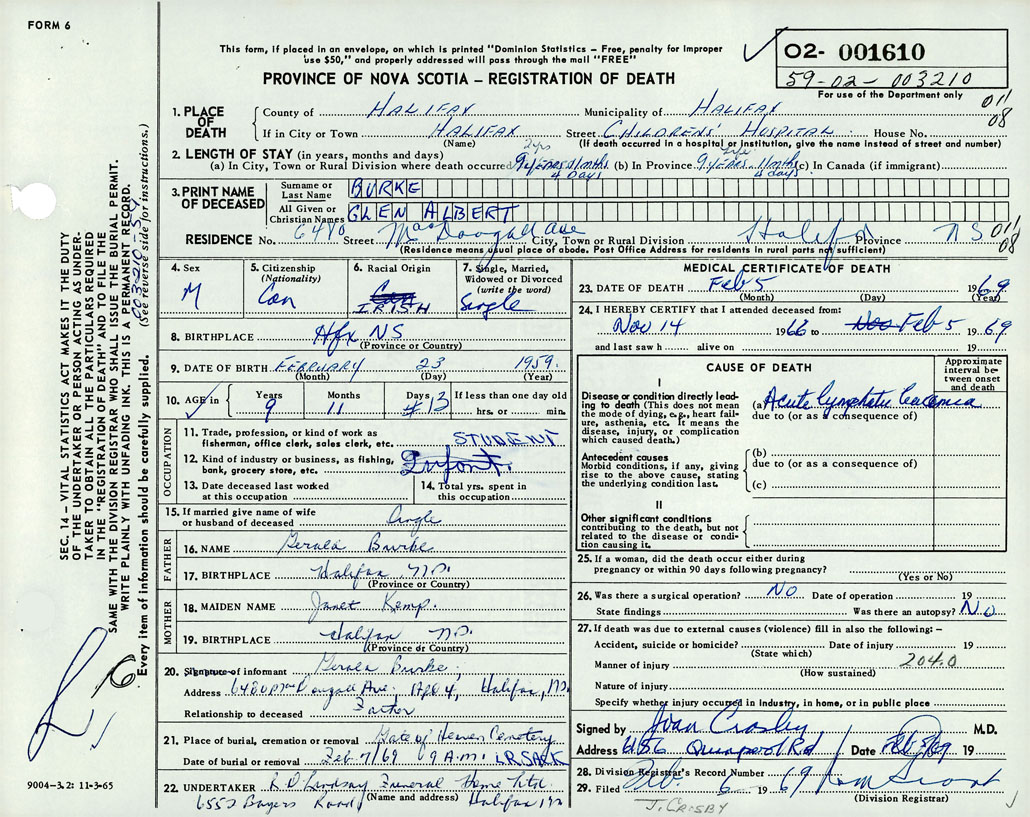 FORM 6
This form, if placed in an envelope, on which is printed "Dominion Statistics – Free, penalty for improper
use $50," and properly addressed will pass through the mail "FREE"
PROVINCE OF NOVA SCOTIA – REGISTRATION OF DEATH
O2- 001610
59-02-003210
For use of the Department only
011
08
1. PLACE OF DEATH
County of HALIFAX Municipality of HALIFAX
If in City or Town HALIFAX Street CHILDRENS' HOSPITAL House No.
(Name) (If death occurred in a hospital or institution, give the name instead of street and number)
2. LENGTH OF STAY (in years, months and days)
2 yrs life
(a) In City, Town or Rural Division where death occurred 9 YEARS 11 mths (b) In Province 9 YEARS 11 mths (c) In Canada (if immigrant)
4 Days 4 days
3. PRINT NAME OF DECEASED
Surname or Last Name BURKE
All Given or Christian Names GLEN ALBERT
RESIDENCE No. 6480 Street MacDougall Ave City, Town or Rural Division Halifax Province NS 011
08
(Residence means usual place of abode. Post Office Address for residents in rural parts not sufficient)
4. Sex
M
5. Citizenship
(Nationality)
Can
6. Racial Origin
Can
IRISH
7. Single, Married,
Widowed or Divorced
(write the word)
Single
8. BIRTHPLACE Hfx NS
(Province or Country)
9. DATE OF BIRTH FEBRUARY 23 1959
(Month) (Day) (Year)
10. AGE in Years Months Days If less than one day old
9 11 13 hrs. or min.
OCCUPATION
11. Trade, profession, or kind of work as
fisherman, office clerk, sales clerk, etc. STUDENT
12. Kind of industry or business, as fishing,
bank, grocery store, etc.
13. Date deceased last worked
at this occupation
14. Total yrs. spent in
this occupation
15. If married give name of wife
or husband of deceased Single
FATHER
16. NAME Gerald Burke
17. BIRTHPLACE Halifax N.S.
(Province or Country)
MOTHER
18. MAIDEN NAME Janet Kemp.
19. BIRTHPLACE Halifax N.S.
(Province or Country)
20. Signature of informant Gerald Burke
Address 6480 MacDougall Ave, Apt 4, Halifax, NS
Relationship to deceased Father
21. Place of burial, cremation or removal Gate of Heaven Cemetery
Date of burial or removal Feb 7/69 9 A.M. LR SACK
22. UNDERTAKER R D Lindsay Funeral Home Ltd.
(Name and address)
6552 Bayers Road Halifax NS
MEDICAL CERTIFICATE OF DEATH
23. DATE OF DEATH Feb 5 1969
(Month) (Day) (Year)
24. I HEREBY CERTIFY that I attended deceased from:
Nov 14 1966 to Nov Feb 5 1969
and last saw h alive on 19
CAUSE OF DEATH
Approximate
interval be-
tween onset
and death
I
Disease or condition directly lead-
ing to death (This does not mean
the mode of dying, e.g., heart fail-
ure, asthenia, etc. It means the
disease, injury, or complication
which caused death.)
(a) Acute lymphatic leucemia
due to (or as a consequence of)
Antecedent causes
Morbid conditions, if any, giving
rise to the above cause, stating
the underlying condition last.
(b)
due to (or as a consequence of)
(c)
II
Other significant conditions
contributing to the death, but not
related to the disease or condi-
tion causing it.
25. If a woman, did the death occur either during
pregnancy or within 90 days following pregnancy?
(Yes or No)
26. Was there a surgical operation? NO Date of operation 19
State findings Was there an autopsy? NO
27. If death was due to external causes (violence) fill in also the following: –
Accident, suicide or homicide? Date of injury 19
(State which)
Manner of injury 204.0
(How sustained)
Nature of injury
Specify whether injury occurred in industry, in home, or in public place
Signed by Joan Crosby M.D.
Address 6156 Quinpool Rd Date Feb 5/69 19
28. Division Registrar's Record Number
29. Filed Feb. 6 1969
(Division Registrar)
J. CROSBY
SEC. 14 – VITAL STATISTICS ACT MAKES IT THE DUTY
OF THE UNDERTAKER OR PERSON ACTING AS UNDER-
TAKER TO OBTAIN ALL THE PARTICULARS REQUIRED
IN THE "REGISTRATION OF DEATH" AND TO FILE THE
SAME WITH THE DIVISION REGISTRAR WHO SHALL ISSUE THE BURIAL PERMIT.
WRITE PLAINLY WITH UNFADING INK. THIS IS A PERMANENT RECORD.
Every item of information should be carefully supplied. (See reverse side for instructions.)
003210-59
9004-3.2: 11-3-65